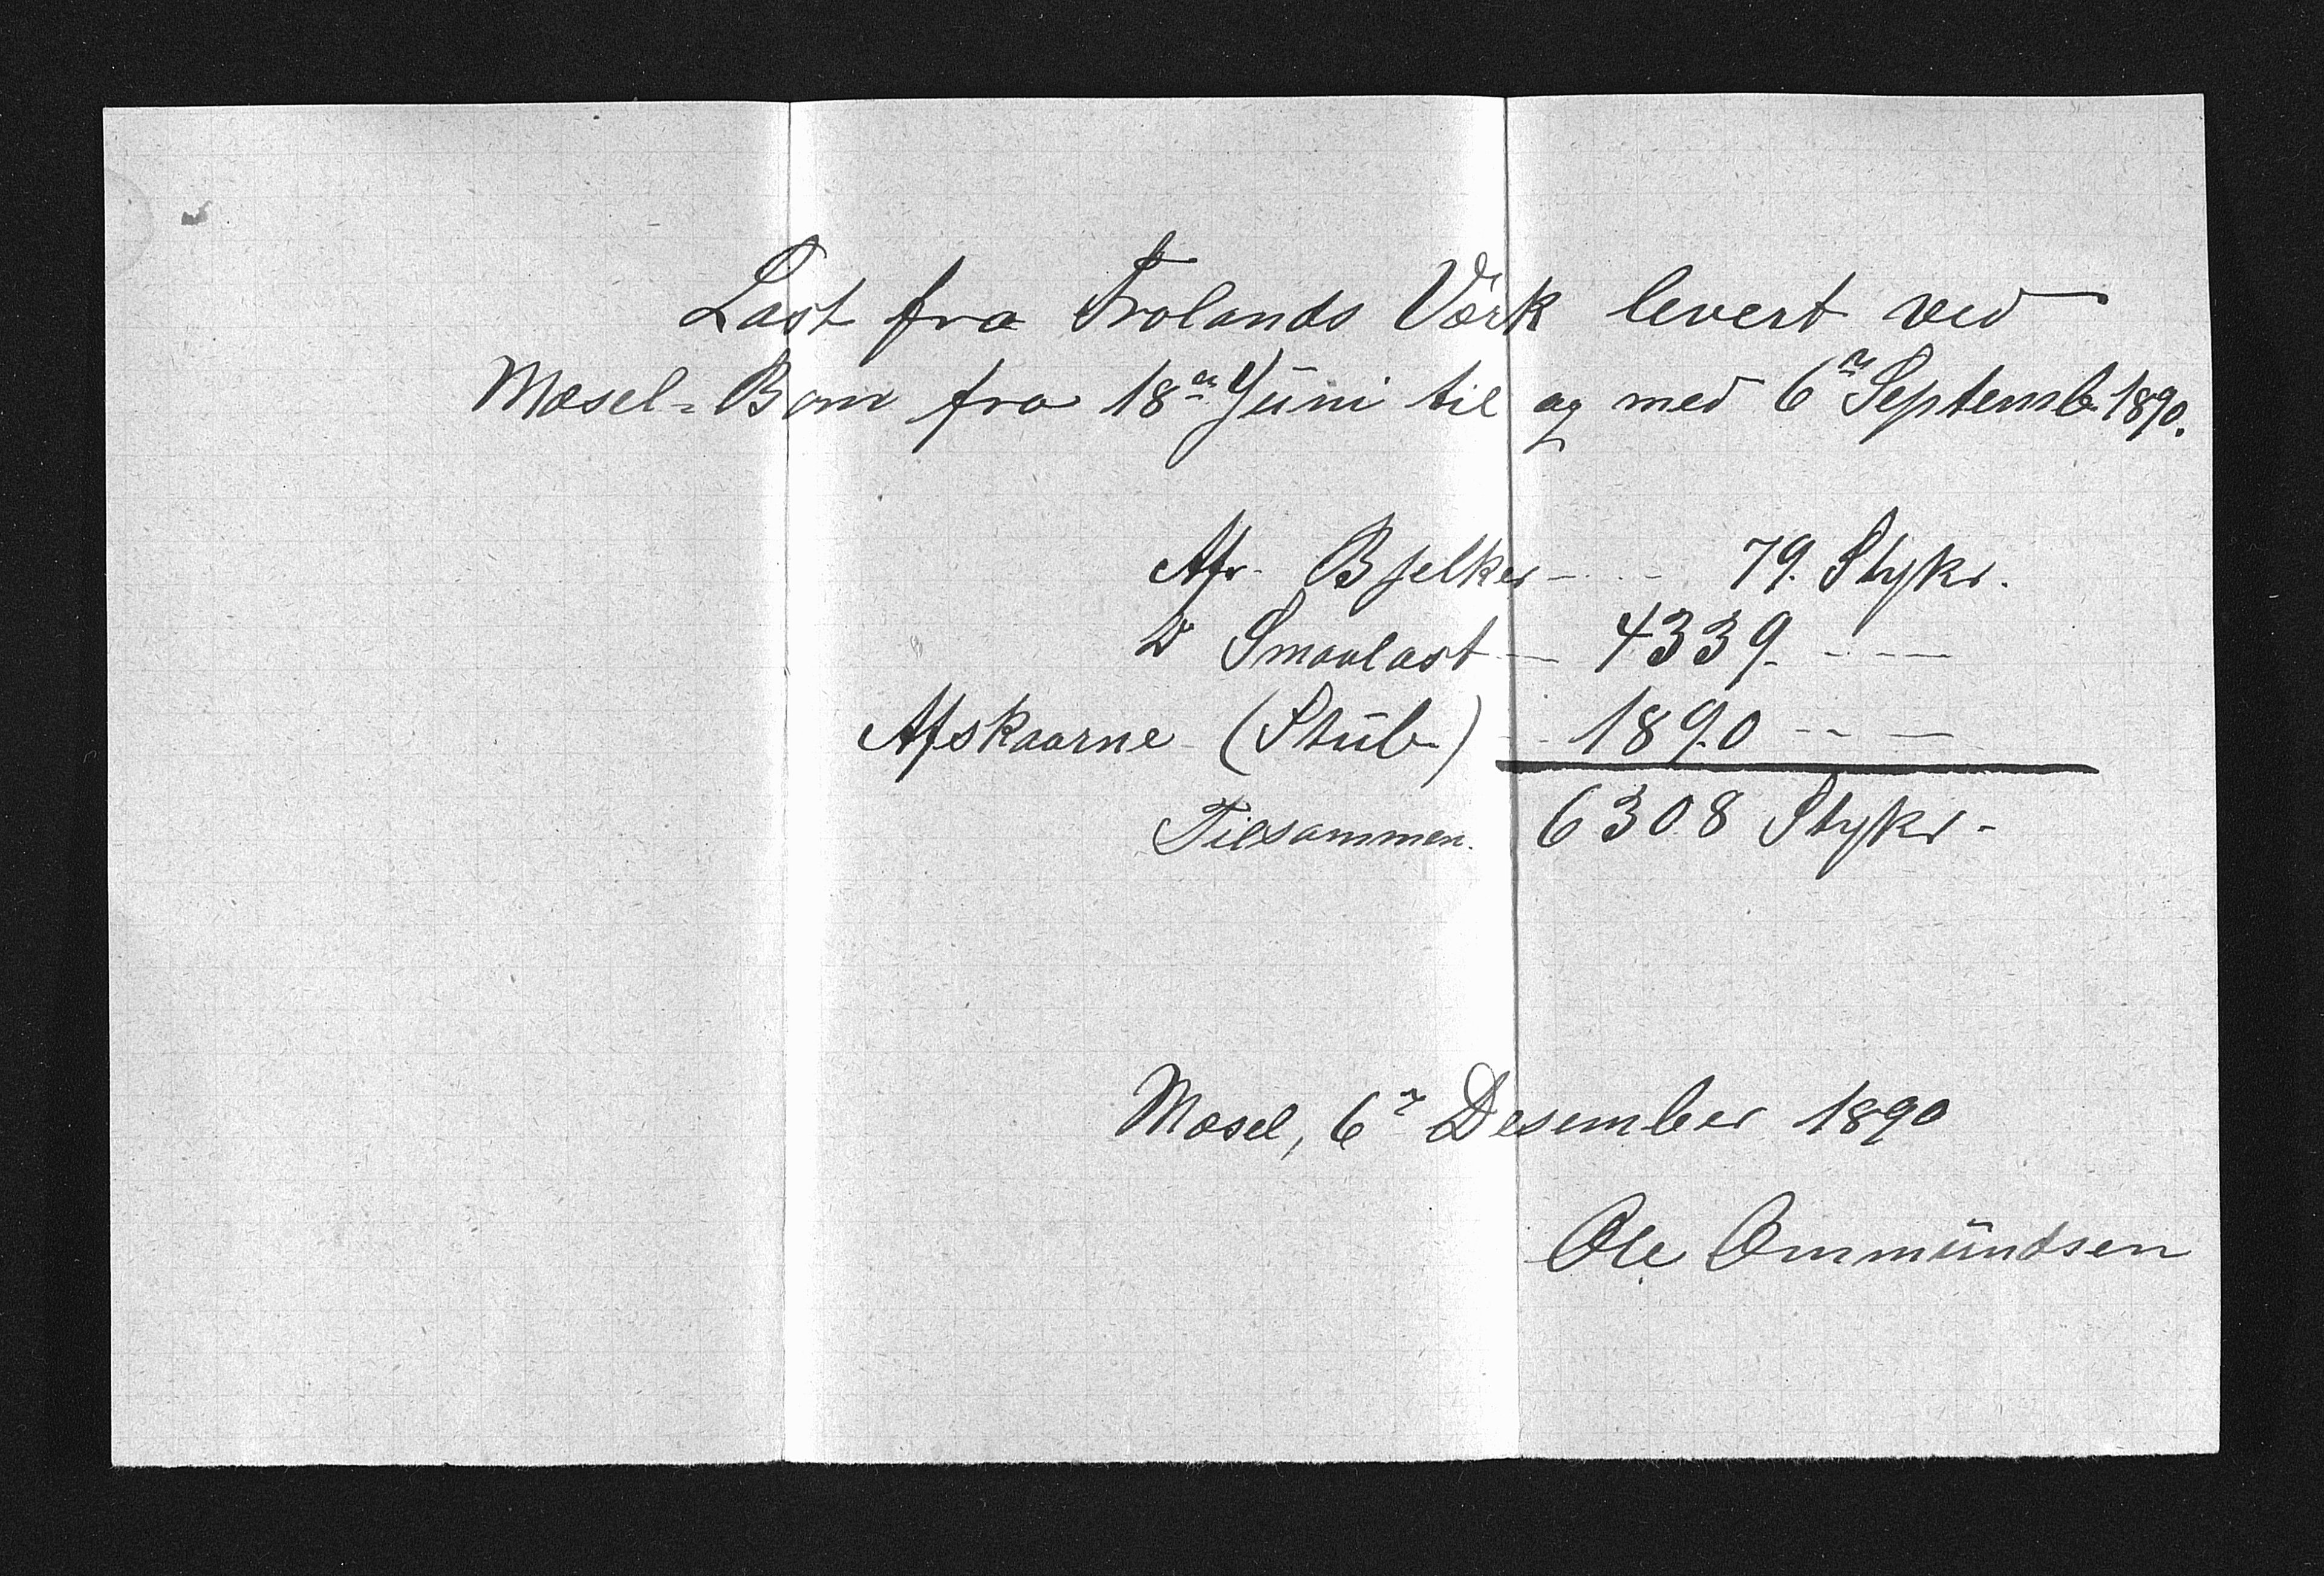 Last fra Frolands Værk levert ved
Mæsel-Bom fra 18en Juni til og med 6r Septemb. 1890.
Afr. Bjelker - - 79. Stykr.
Do Smaalast - 4339. - - -
Afskaarne (Stüb.) - 1890 - - -
Tilsammen. 6308 Stykr -
Mæsel, 6r Desember 1890
Ole Ommündsen